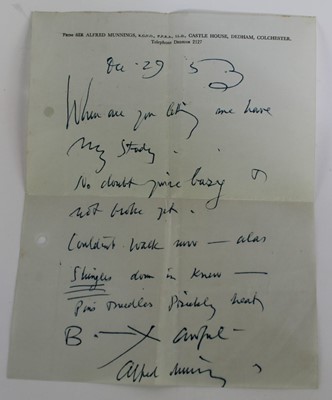 From SIR ALFRED MUNNINGS, K.C.V.O., P.P.R.A., LL.D., CASTLE HOUSE, DEDHAM, COLCHESTER.
Telephone Dedham 2127
Dec - 29 53
When are you letting me have
My Study .
No doubt you're busy &
not broke yet .
Couldn't walk now — alas
Shingles down in knee —
Pins Needles Prickly heat
B. awful —
Alfred Munnings